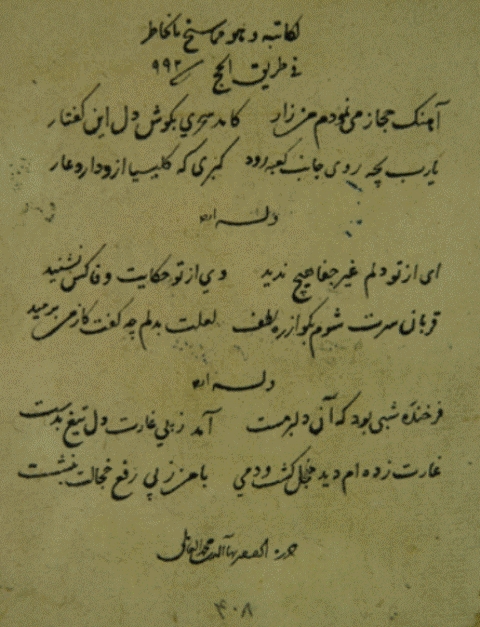 لکاتبه و هو مما سنح بالخاطر
فی طریق الحج سنه ۹۹۲
آهنگ حجاز می‌نمودم من زار کامد سحری بگوش دل این گفتار
یارب بچه روی جانب کعبه رود گبری که کلیسیا ازو دارد عار
وله ایضا
ای از تو دلم غیر جفا هیچ ندید وی از تو حکایت وفا کس نشنید
قربان سرت شوم بگو از ره لطف لعلت بدلم چه گفت کز من برمید
وله ایضا
فرخنده شبی بود که آن دلبر مست آمد ز پی غارت دل تیغ بدست
غارت زده‌ام دید خجل گشت و دمی با من ز پی رفع خجالت بنشست
حرره بهاء الدین محمد العاملی
۴۰۸